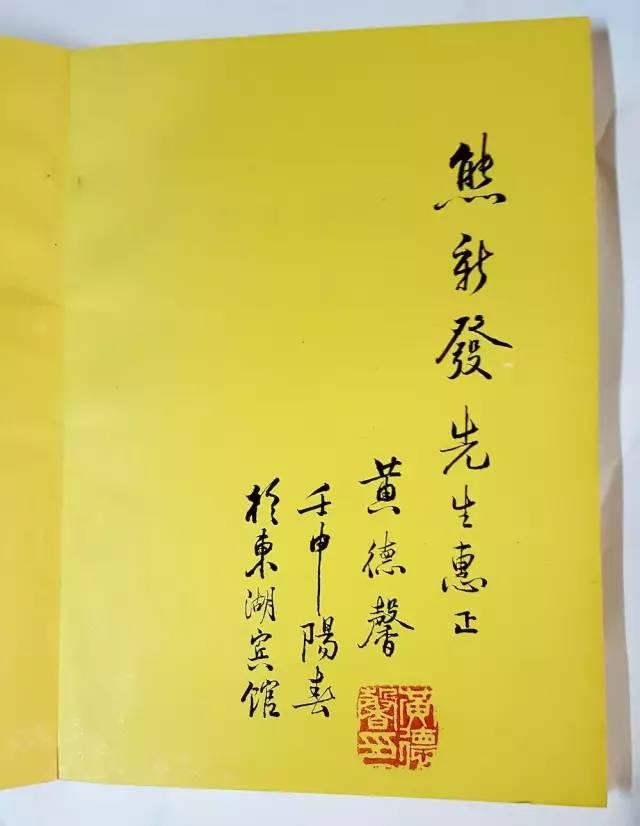 熊新發先生惠正
黄德馨
壬申陽春
於東湖宾馆
黄德馨印